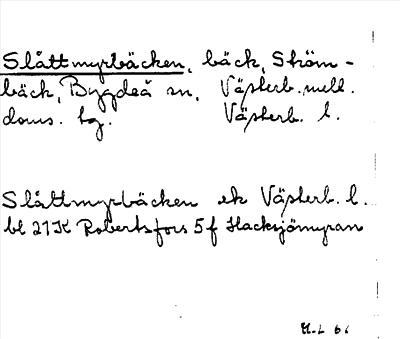 Slåttmyrbäcken, bäck, Ström-
bäck, Bygdeå sn, Västerb. mell.
doms. hg. Västerb. l.
Slåttmyrbäcken ek Västerb. l.
bl 21K Robertsfors 5 f Hacksjömyran